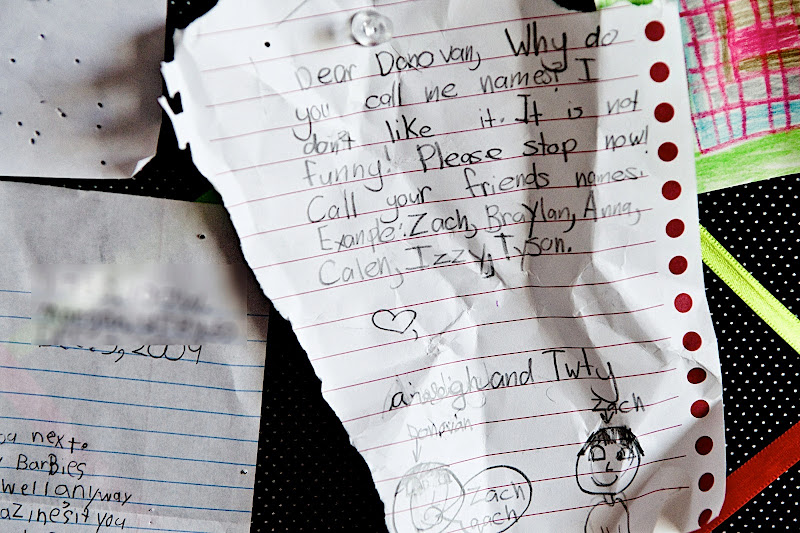 Dear Donovan, Why do
you call me names? I
don't like it. It is not
funny! Please stop now!
Call your friends names.
Example: Zach, Braylan, Anna,
Caleh, Izzy, Tyson.
and Twty
Zach
Zach
2009
ou next.
Barbies
well anyway
azines it you